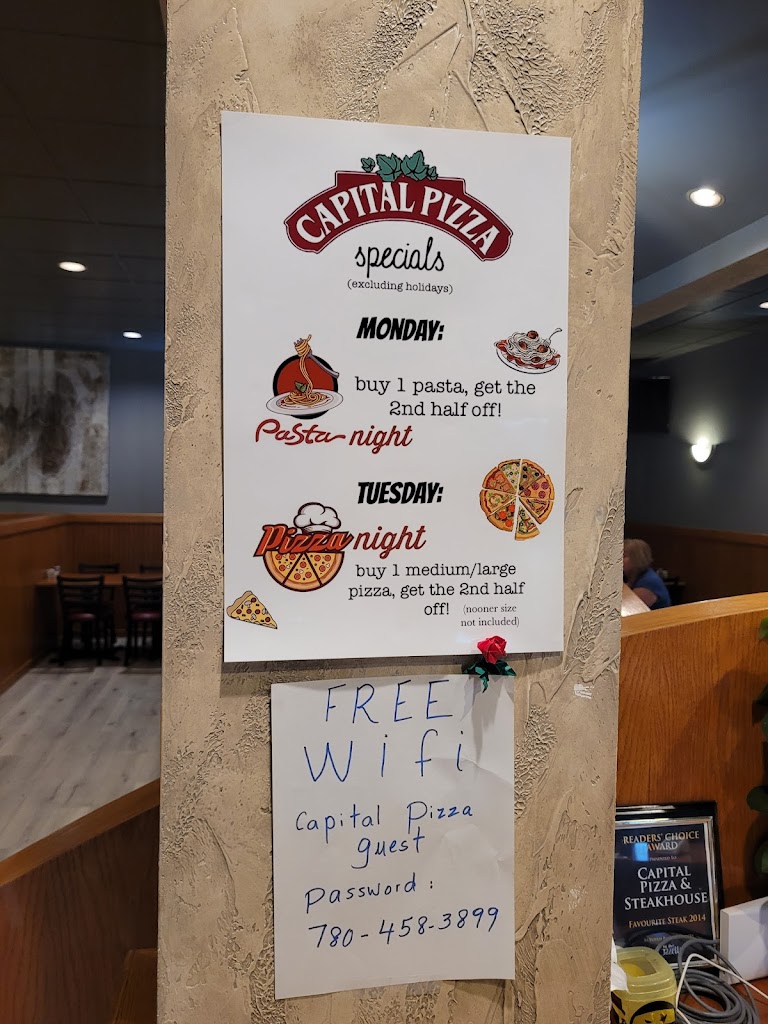 CAPITAL PIZZA
specials
(excluding holidays)
MONDAY:
buy 1 pasta, get the
2nd half off!
Pasta night
TUESDAY:
Pizza night
buy 1 medium/large
pizza, get the 2nd half
off! (nooner size
not included)
FREE
Wifi
Capital Pizza
guest
Password:
780-458-3899
READERS' CHOICE
AWARD
CAPITAL
PIZZA &
STEAKHOUSE
FAVOURITE STEAK 2014